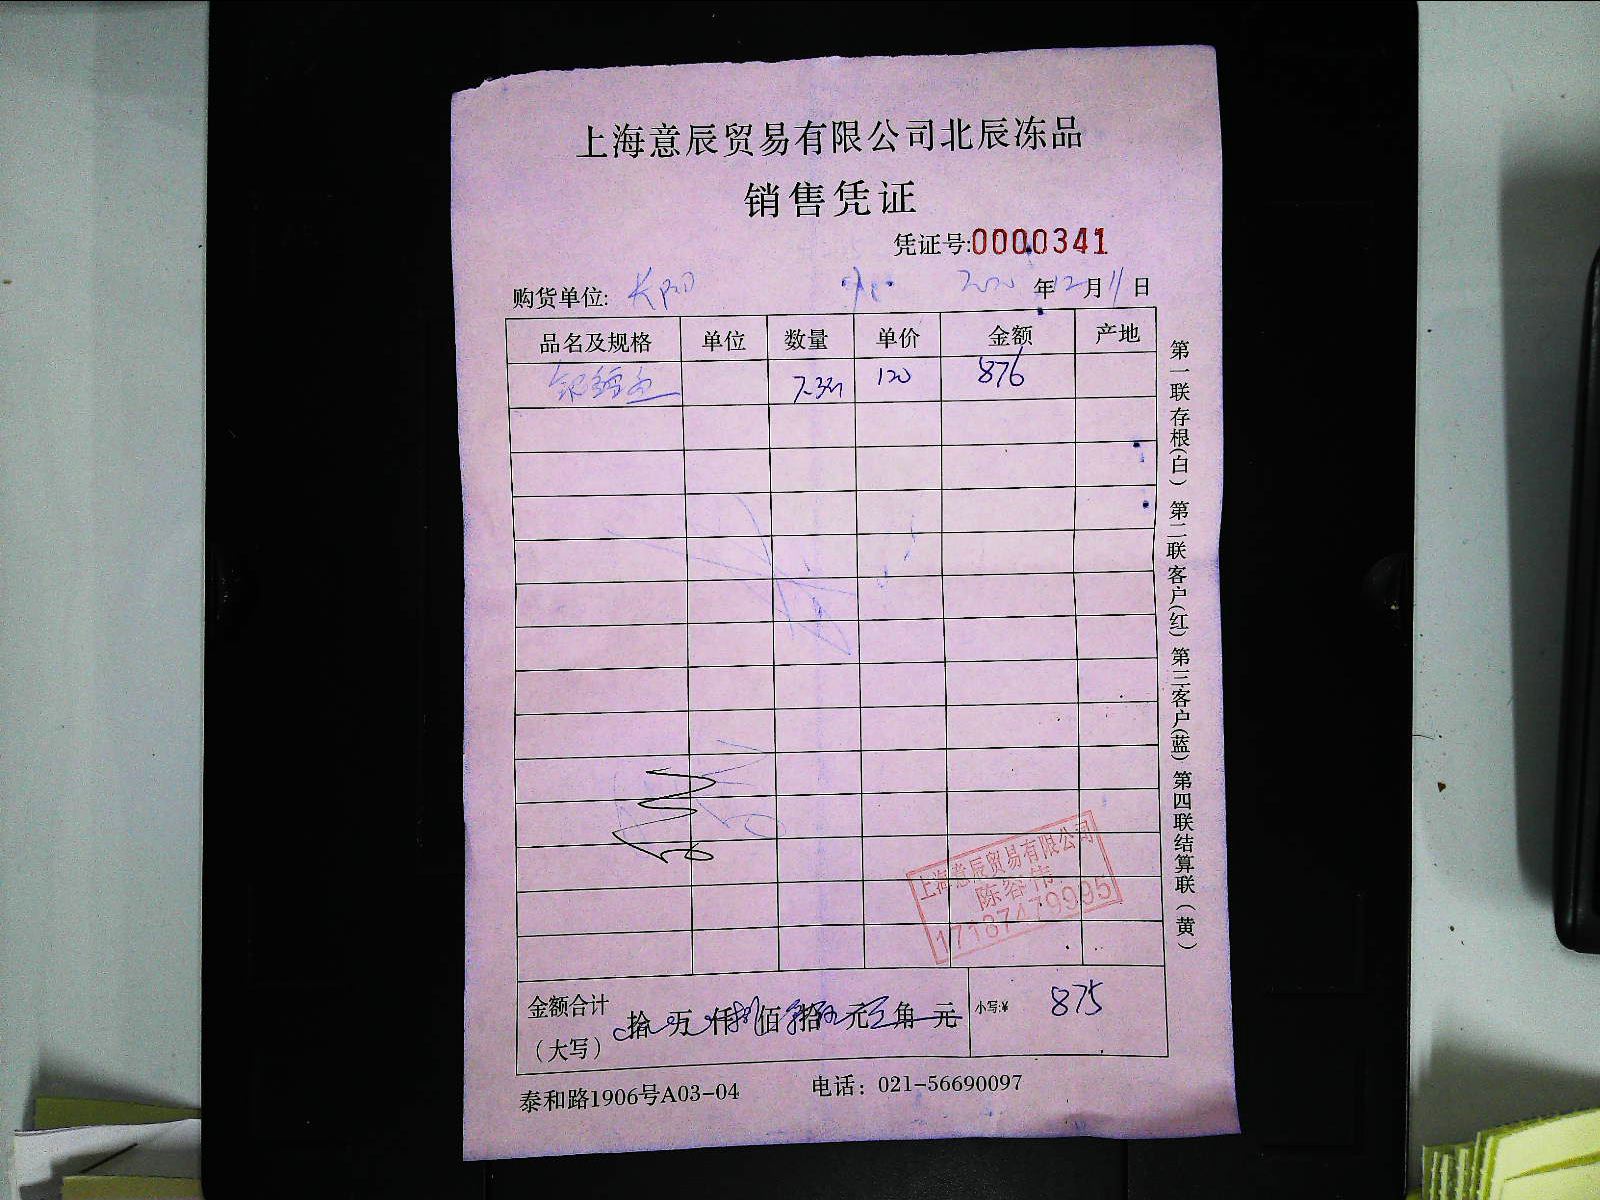 上海意辰贸易有限公司北辰冻品
销售凭证
凭证号:0000341
购货单位: 长阳 2020 年 12 月 11 日
品名及规格 单位 数量 单价 金额 产地
银鳕鱼 7.3 120 876
上海意辰贸易有限公司
陈容伟
17187479995
金额合计（大写） 拾 万 仟 捌 佰 柒 拾 伍 元 角 元 小写:¥ 875
泰和路1906号A03-04 电话：021-56690097
第一联存根(白) 第二联客户(红) 第三客户(蓝) 第四联结算联（黄）